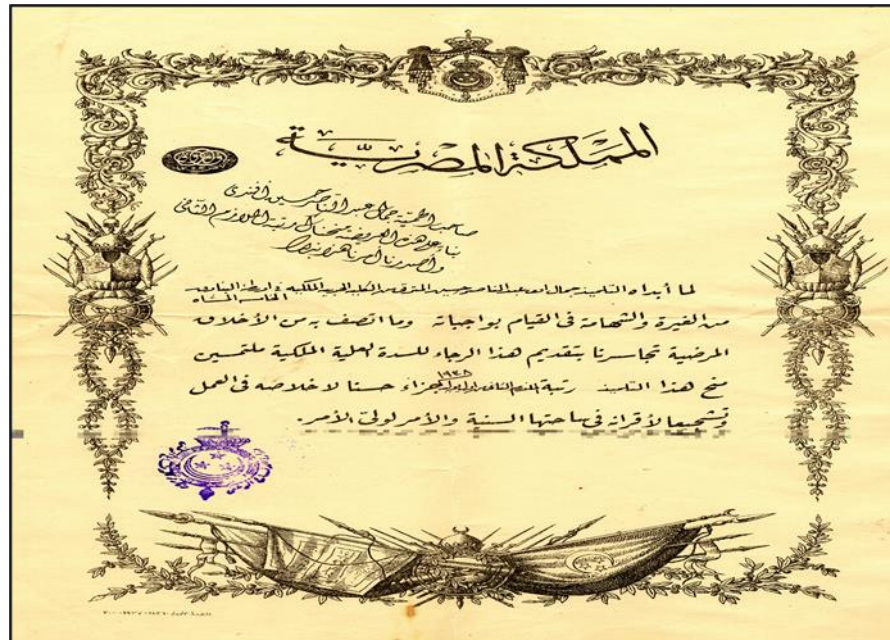 المملكة المصرية
صاحب الحمية جمال عبد الناصر حسين افندى
بناء على هذه العريضة منحناك رتبة الملازم الثانى
وأصدرنا أمرنا هذا بذلك
لما أبداه التلميذ جمال افندى عبد الناصر حسين من الكلية الحربية الملكية
من الغيرة والشهامة فى القيام بواجباته وما اتصف به من الأخلاق
المرضية تجاسرنا بتقديم هذا الرجاء للسدة العلية الملكية ملتمسين
منح هذا التلميذ رتبة الملازم الثانى ١٩٣٨ جزاء حسنا لاخلاصه فى العمل
وتشجيعا لأقرانه فى ساحتها السنية والأمر لولى الأمر.